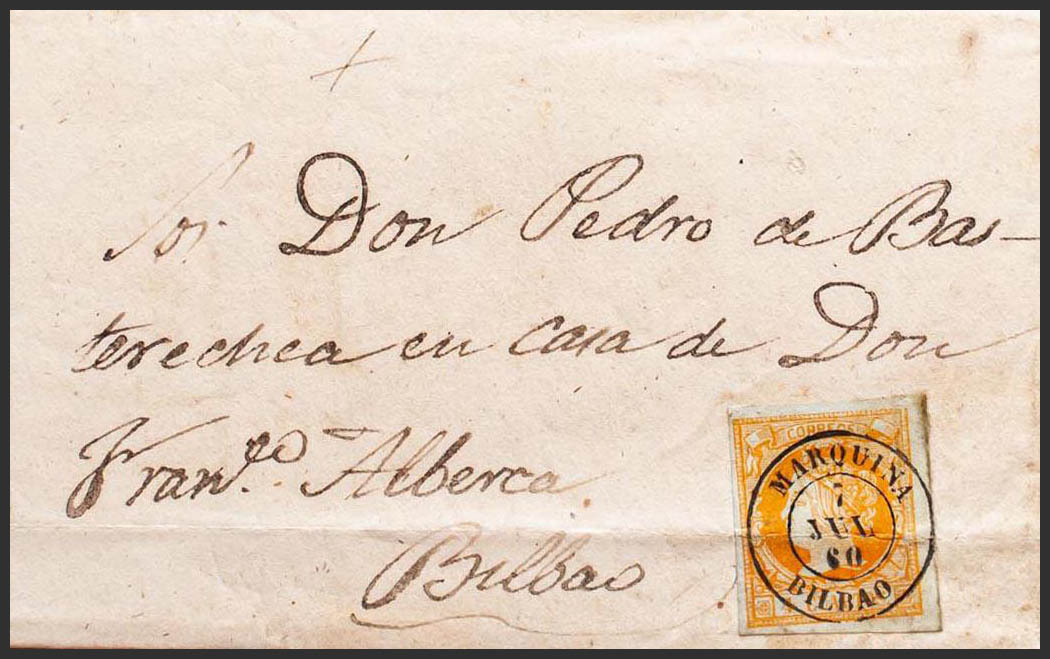 Sor. Don Pedro de Bas-
terechea en casa de Don
Fran.co Alberca
Bilbao
CORREOS
MARQUINA
7
JUL
60
BILBAO